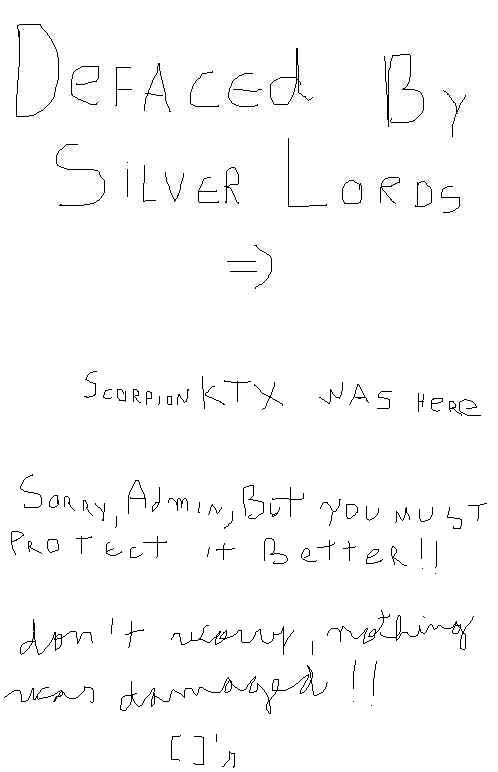 Defaced By
Silver Lords
=)
ScorpionKTX was here
Sorry, Admin, But you must
protect it Better!!
don't worry, nothing
was damaged!!
[]'s